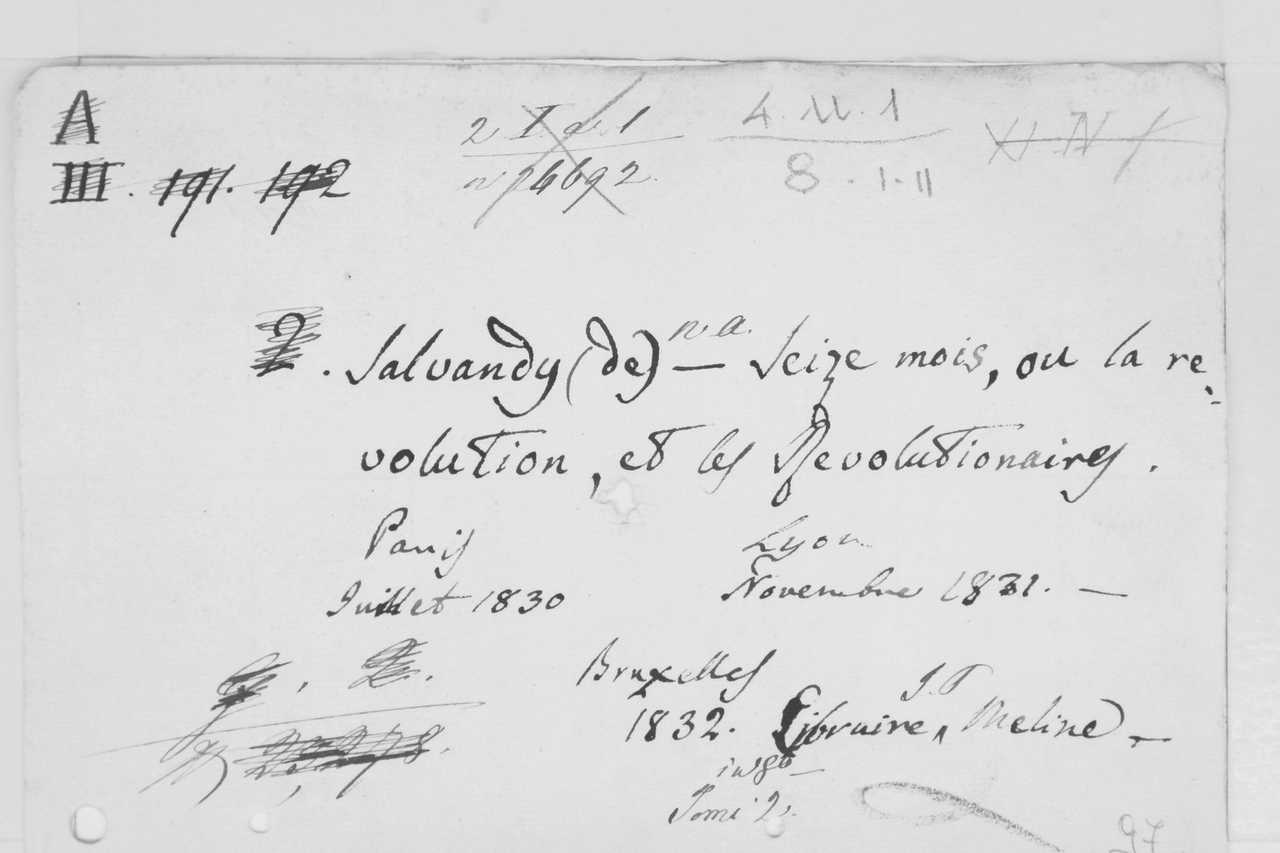 A
III. 191. 192
2 I a 1
4. 11. 1
8. 1. 11
2. Salvandy (de) n.a. — Seize mois, ou la re-
volution, et les Revolutionaires.
Paris Lyon
Juillet 1830 Novembre 1831. —
Bruxelles
1832. Libraire J.P Meline —
in 8º —
Tomi 2.
97